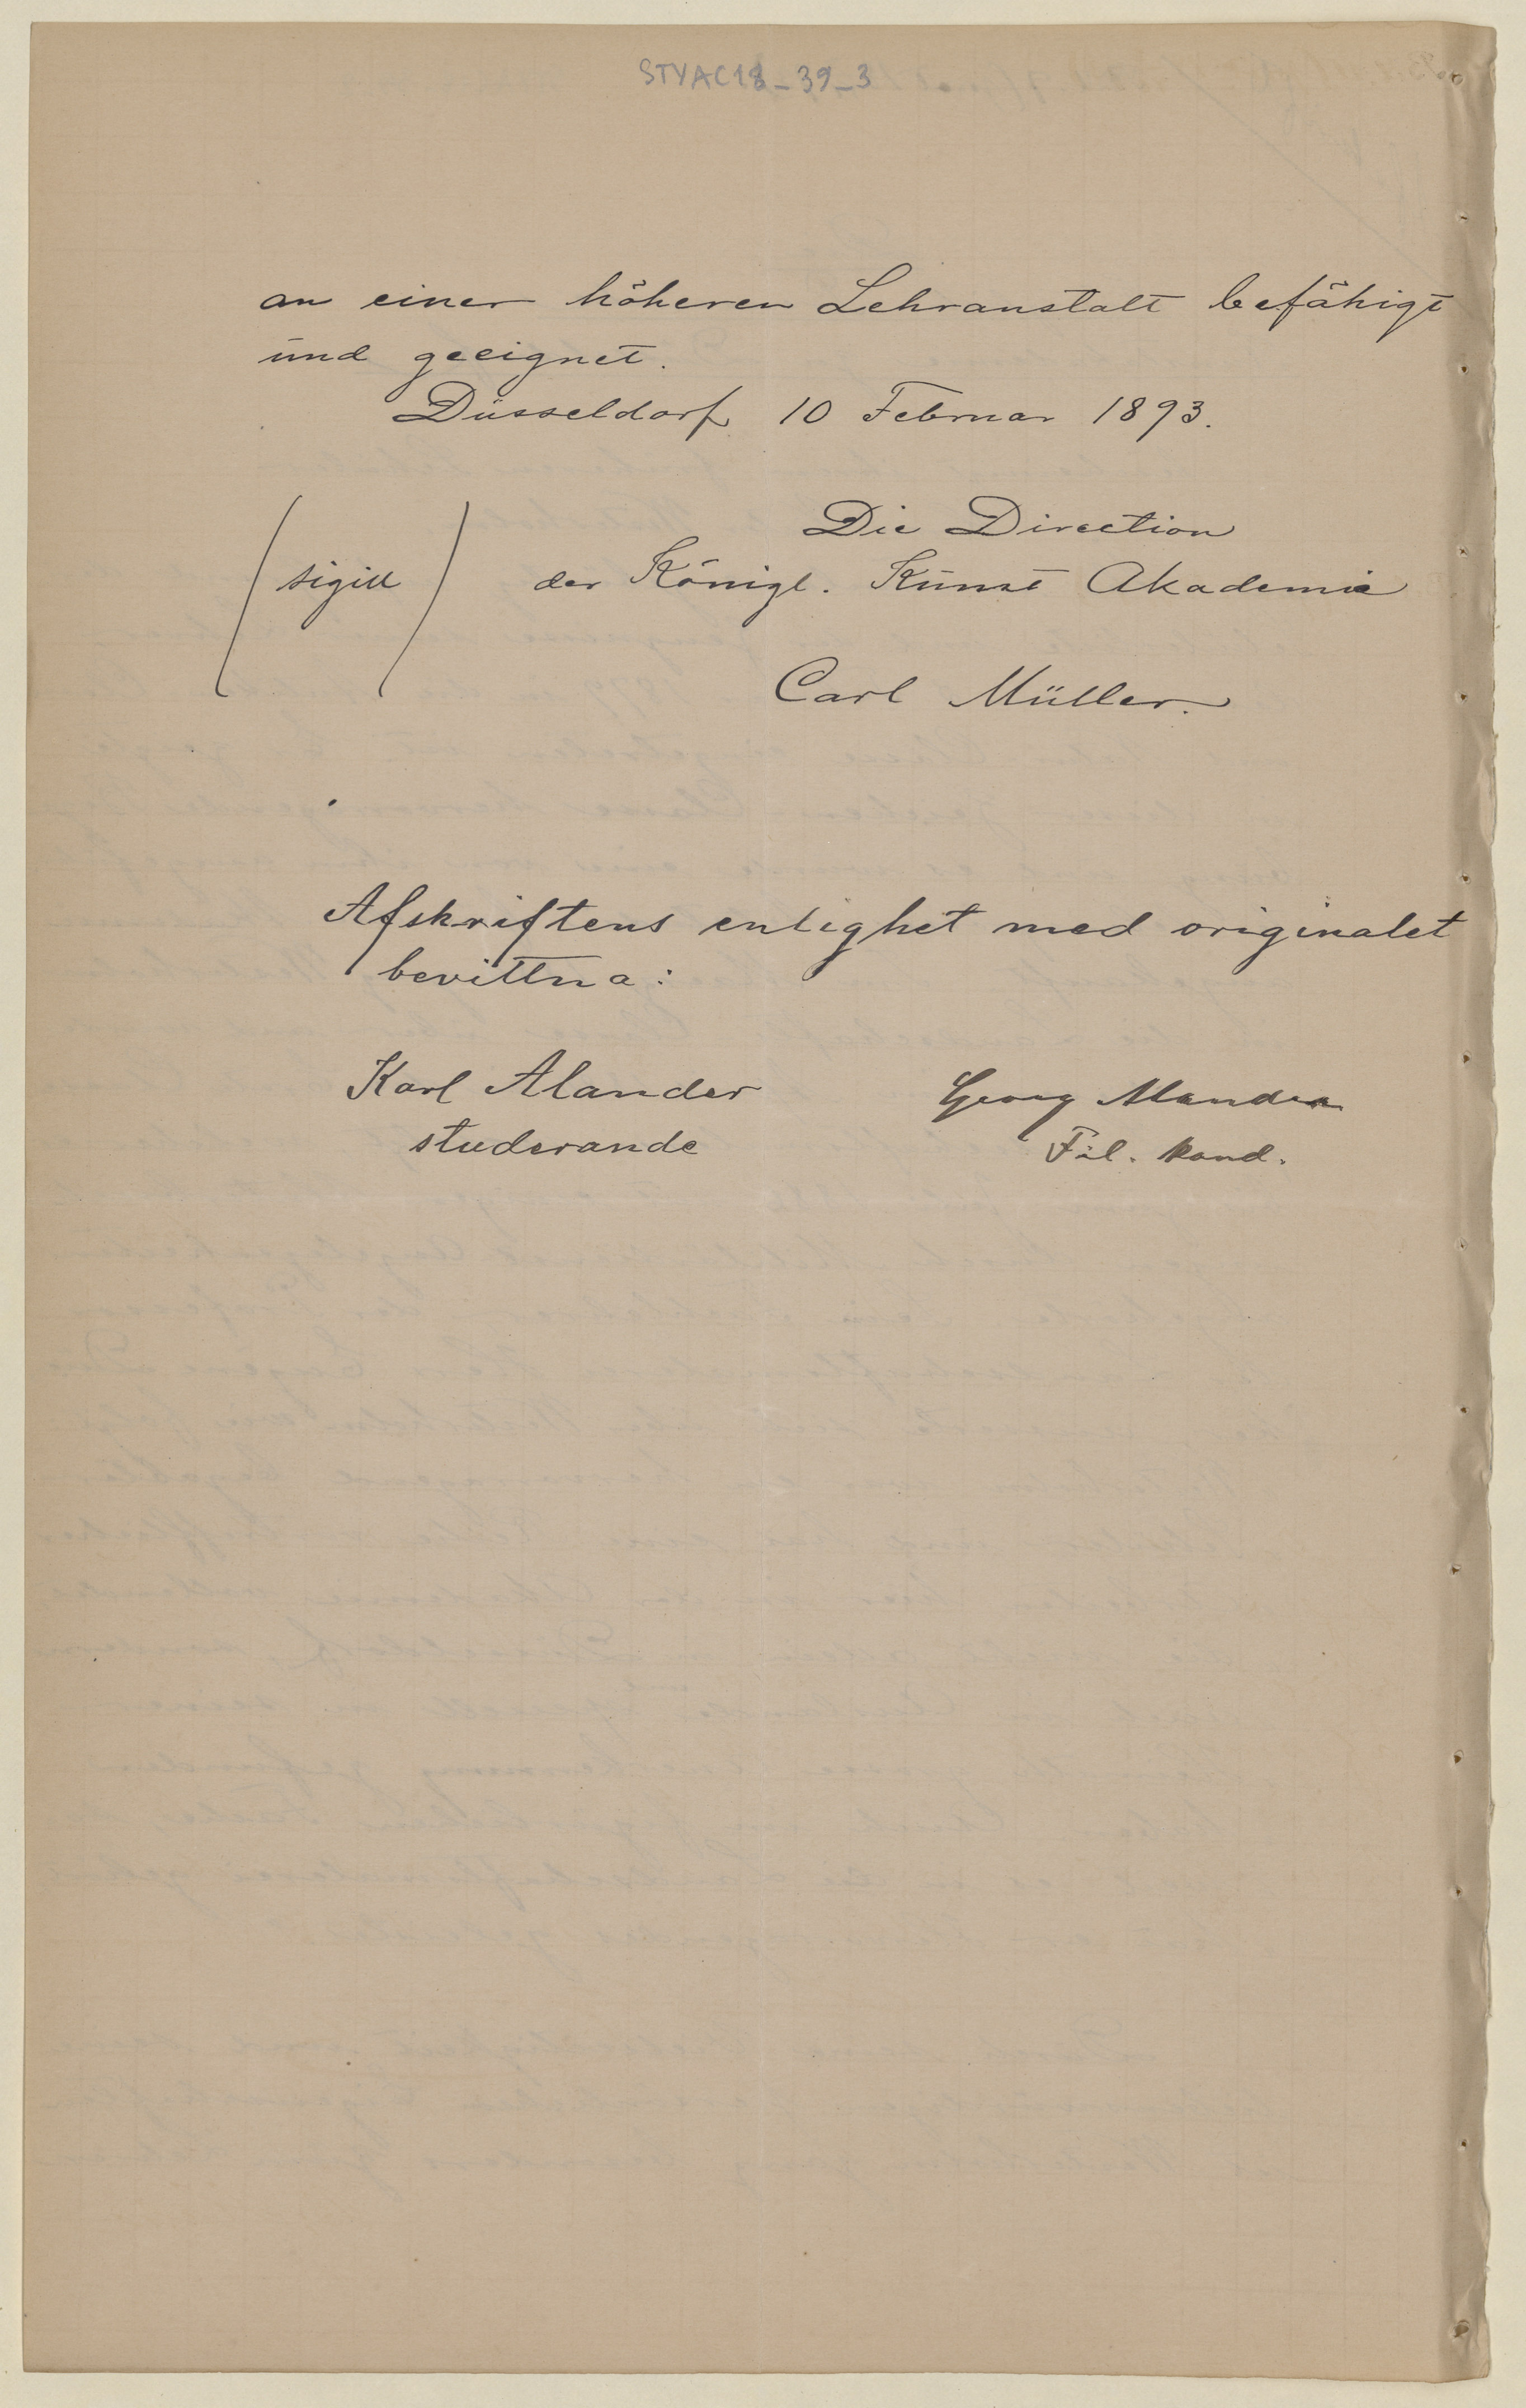 STYAC18_39_3
an einer höheren Lehranstalt befähigt
und geeignet.
Düsseldorf 10 Februar 1893.
Die Direction
(sigill) der Königl. Kunst Akademie
Carl Müller.
Afskriftens enlighet med originalet
bevittna:
Karl Alander Georg Alander
studerande Fil. kand.